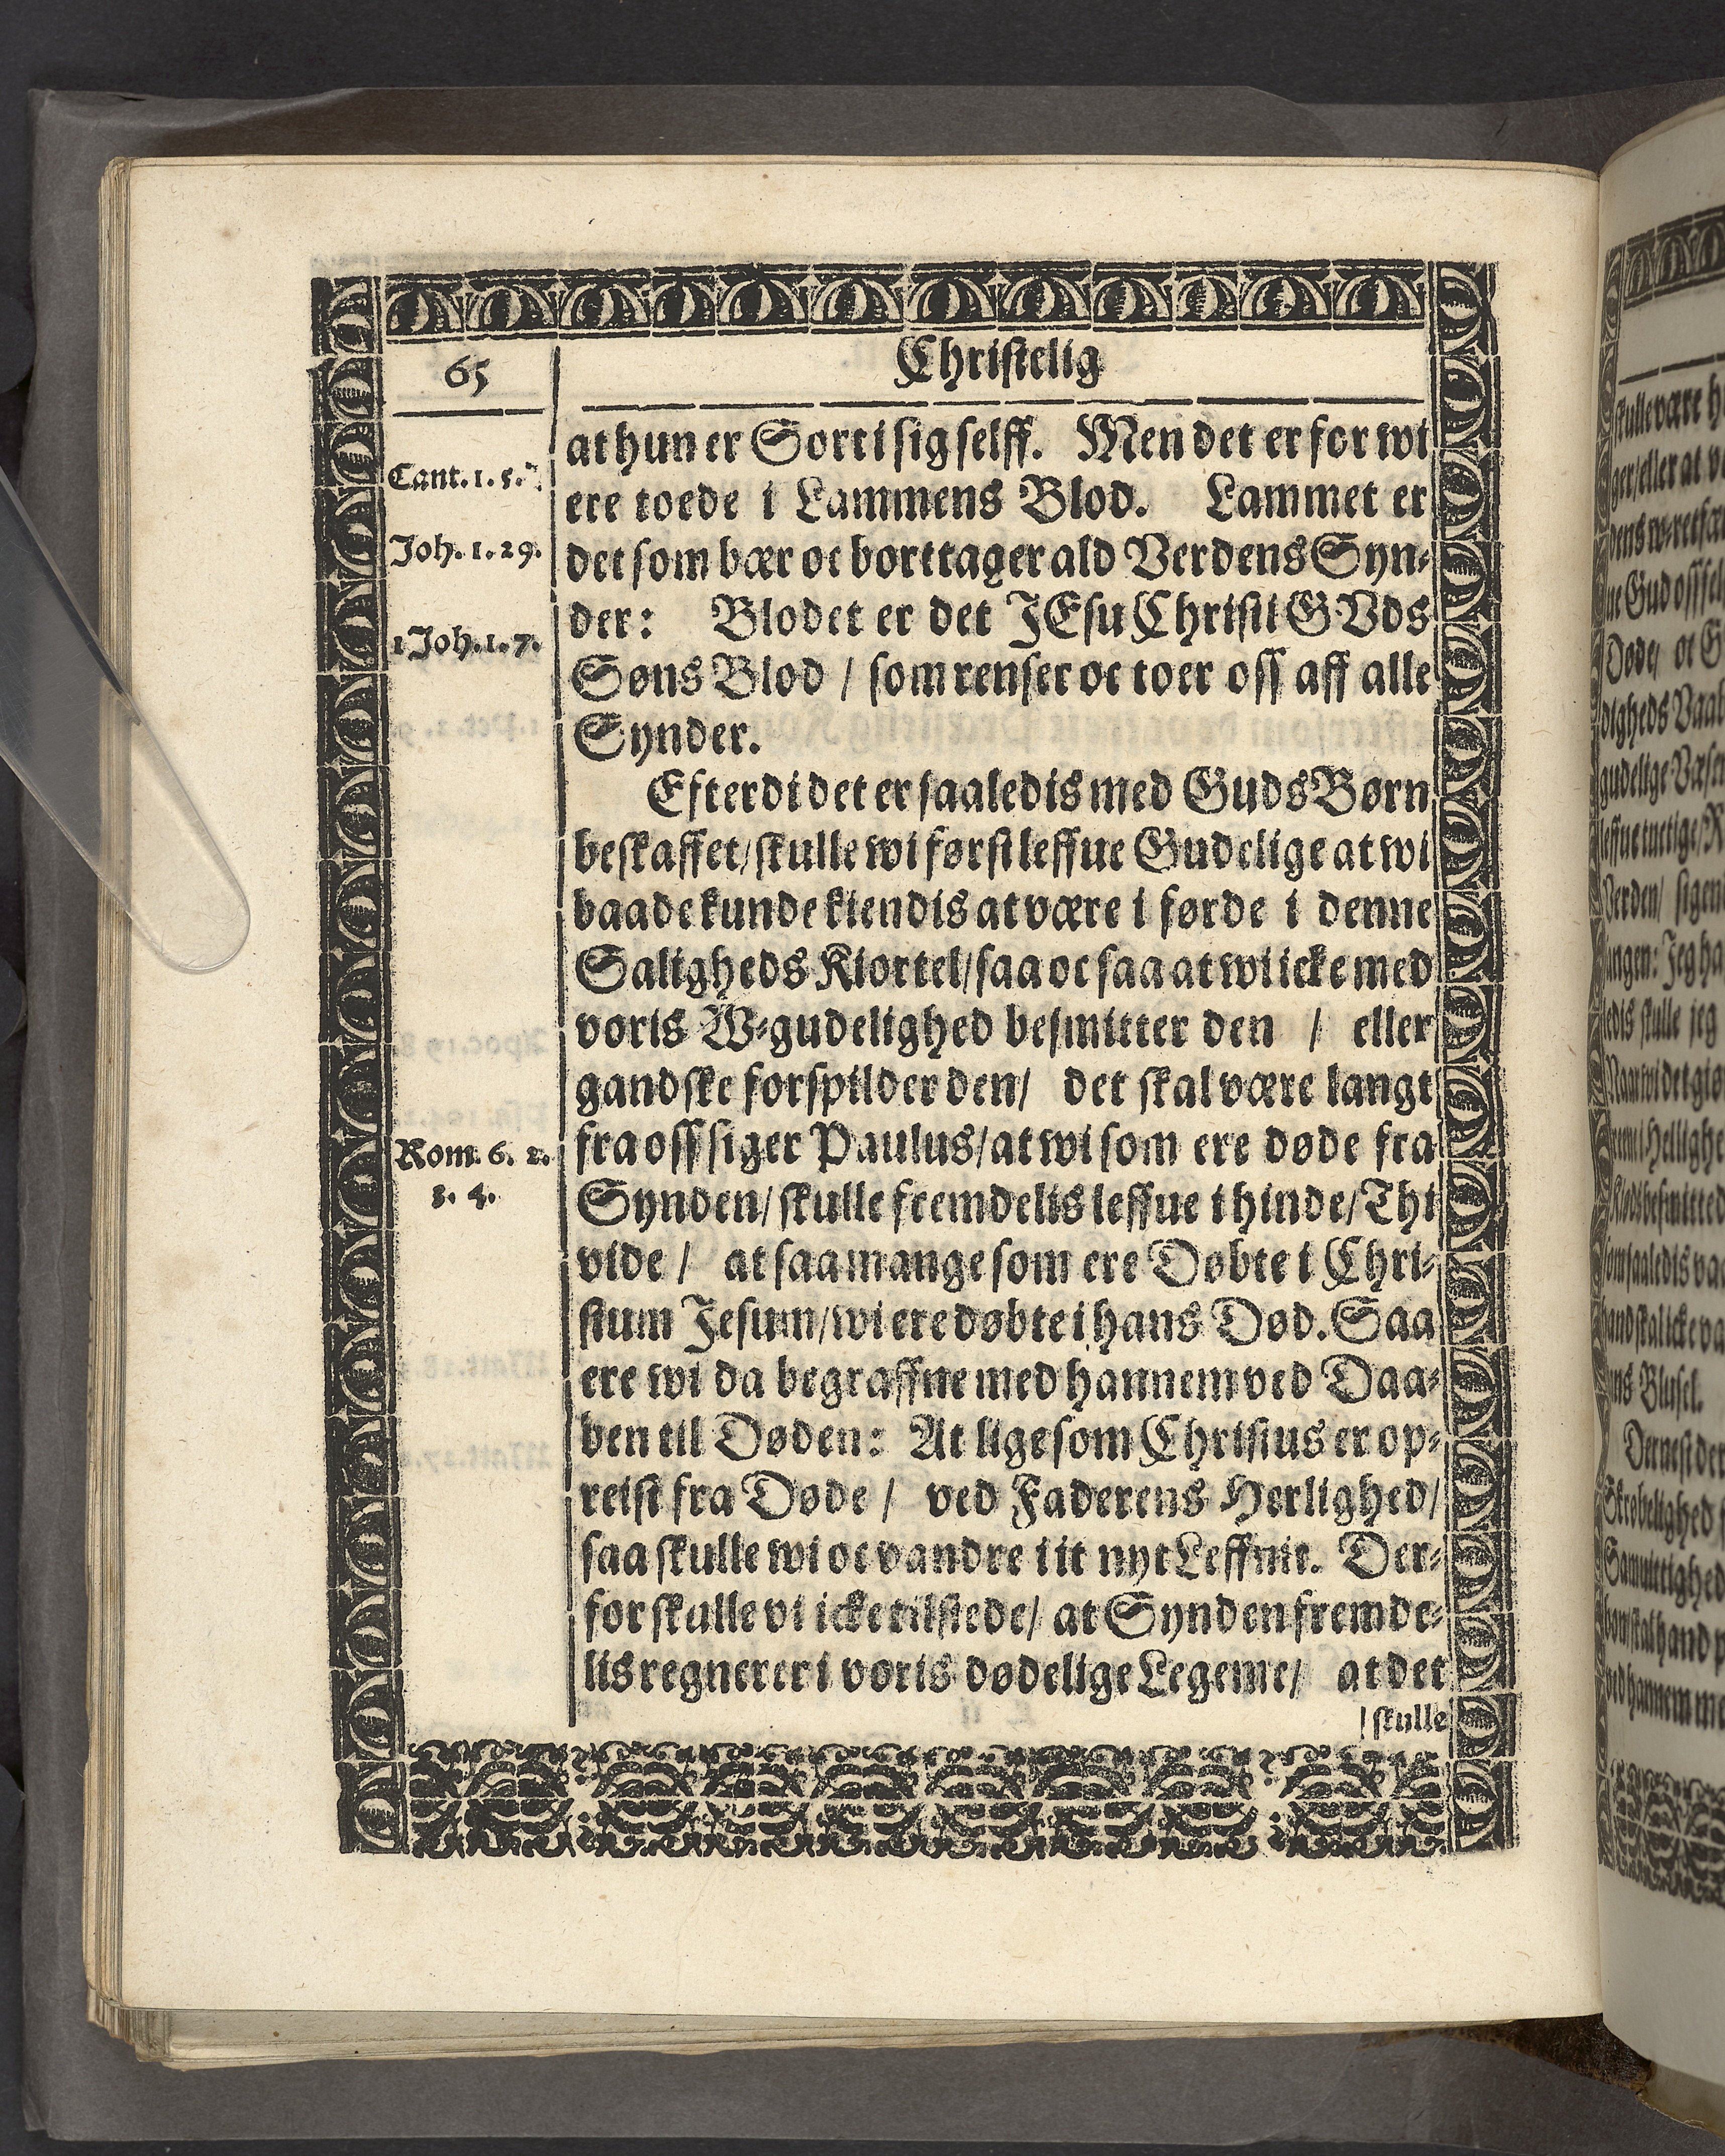 65
Christelig
Cant. 1. 5.
Joh. 1. 29.
1 Joh. 1. 7.
Rom. 6. 2.
3. 4.
at hun er Sort i sig selff. Men det er for wi
ere toede i Lammens Blod. Lammet er
det som bær oc borttager ald Verdens Syn-
der: Blodet er det JEsu Christi GVds
Søns Blod / som renser oc toer oss aff alle
Synder.
Efterdi det er saaledis med Guds Børn
beskaffet/ skulle wi først leffue Gudelige at wi
baade kunde kiendis at være i førde i denne
Saligheds Kiortel/ saa oc saa at wi icke med
voris W-gudelighed besmitter den / eller
gandske forspilder den/ det skal være langt
fra oss siger Paulus/ at wi som ere døde fra
Synden/ skulle fremdelis leffue i hinde/ Thi
vide / at saa mange som ere Døbte i Chri-
stum Jesum/ wi ere døbte i hans Død. Saa
ere wi da begraffne med hannem ved Daa-
ben til Døden: At lige som Christus er op-
reist fra Døde / ved Faderens Herlighed/
saa skulle wi oc vandre i it nyt Leffnit. Der-
for skulle vi icke tilstede/ at Synden fremde-
lis regnerer i voris dødelige Legeme/ at det
skulle